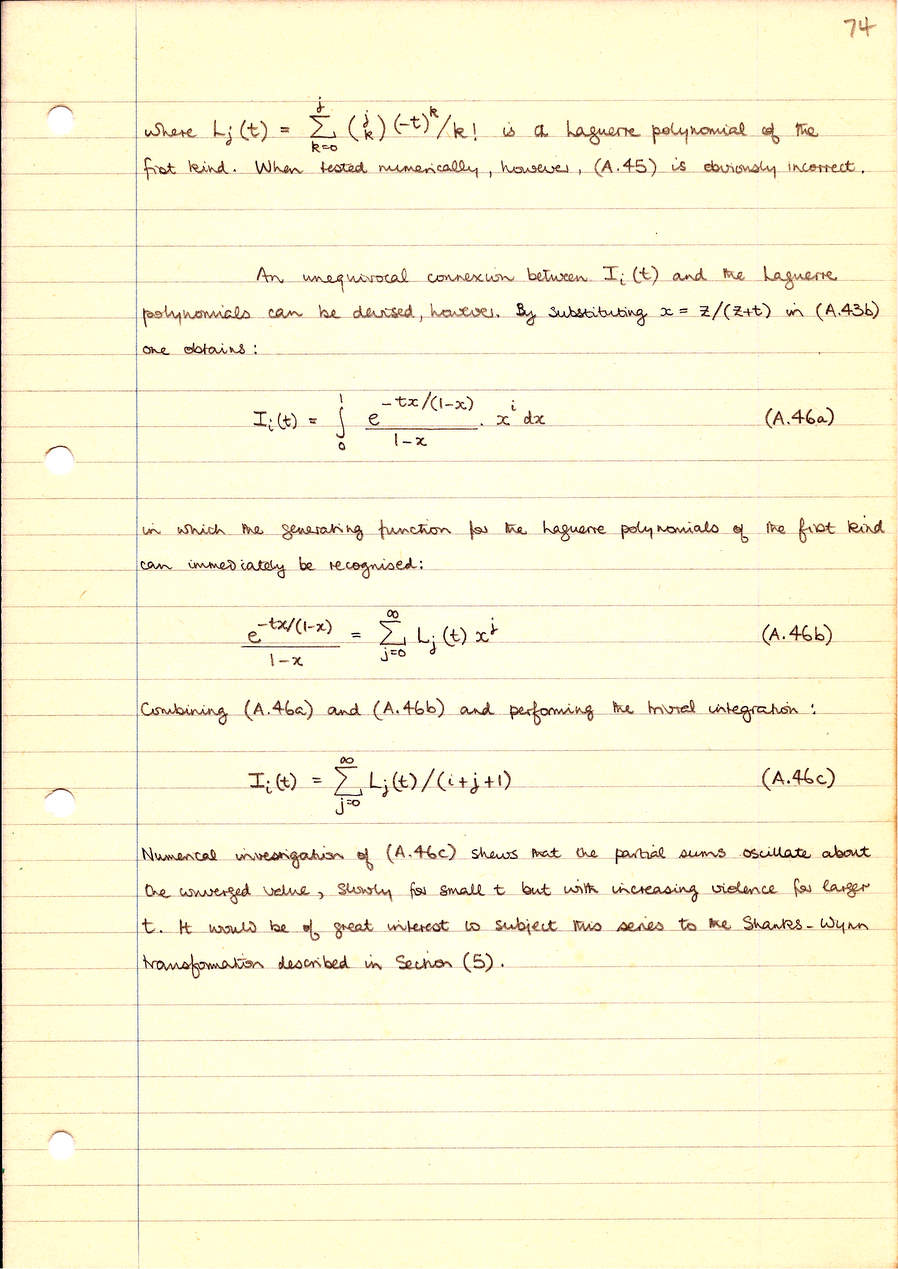 74
where Lj(t) = j Σ k=0 (j k) (-t)^k/k! is a Laguerre polynomial of the
first kind. When tested numerically, however, (A.45) is obviously incorrect.
An unequivocal connexion between Ii(t) and the Laguerre
polynomials can be devised, however. By substituting x = z/(z+t) in (A.43b)
one obtains:
Ii(t) = ∫₀¹ e^(-tx/(1-x)) / (1-x) . x^i dx (A.46a)
in which the generating function for the Laguerre polynomials of the first kind
can immediately be recognised:
e^(-tx/(1-x)) / (1-x) = ∞ Σ j=0 Lj(t) x^j (A.46b)
Combining (A.46a) and (A.46b) and performing the trivial integration:
Ii(t) = ∞ Σ j=0 Lj(t)/(i+j+1) (A.46c)
Numerical investigation of (A.46c) shews that the partial sums oscillate about
the converged value, slowly for small t but with increasing violence for larger
t. It would be of great interest to subject this series to the Shanks-Wynn
transformation described in Section (5).